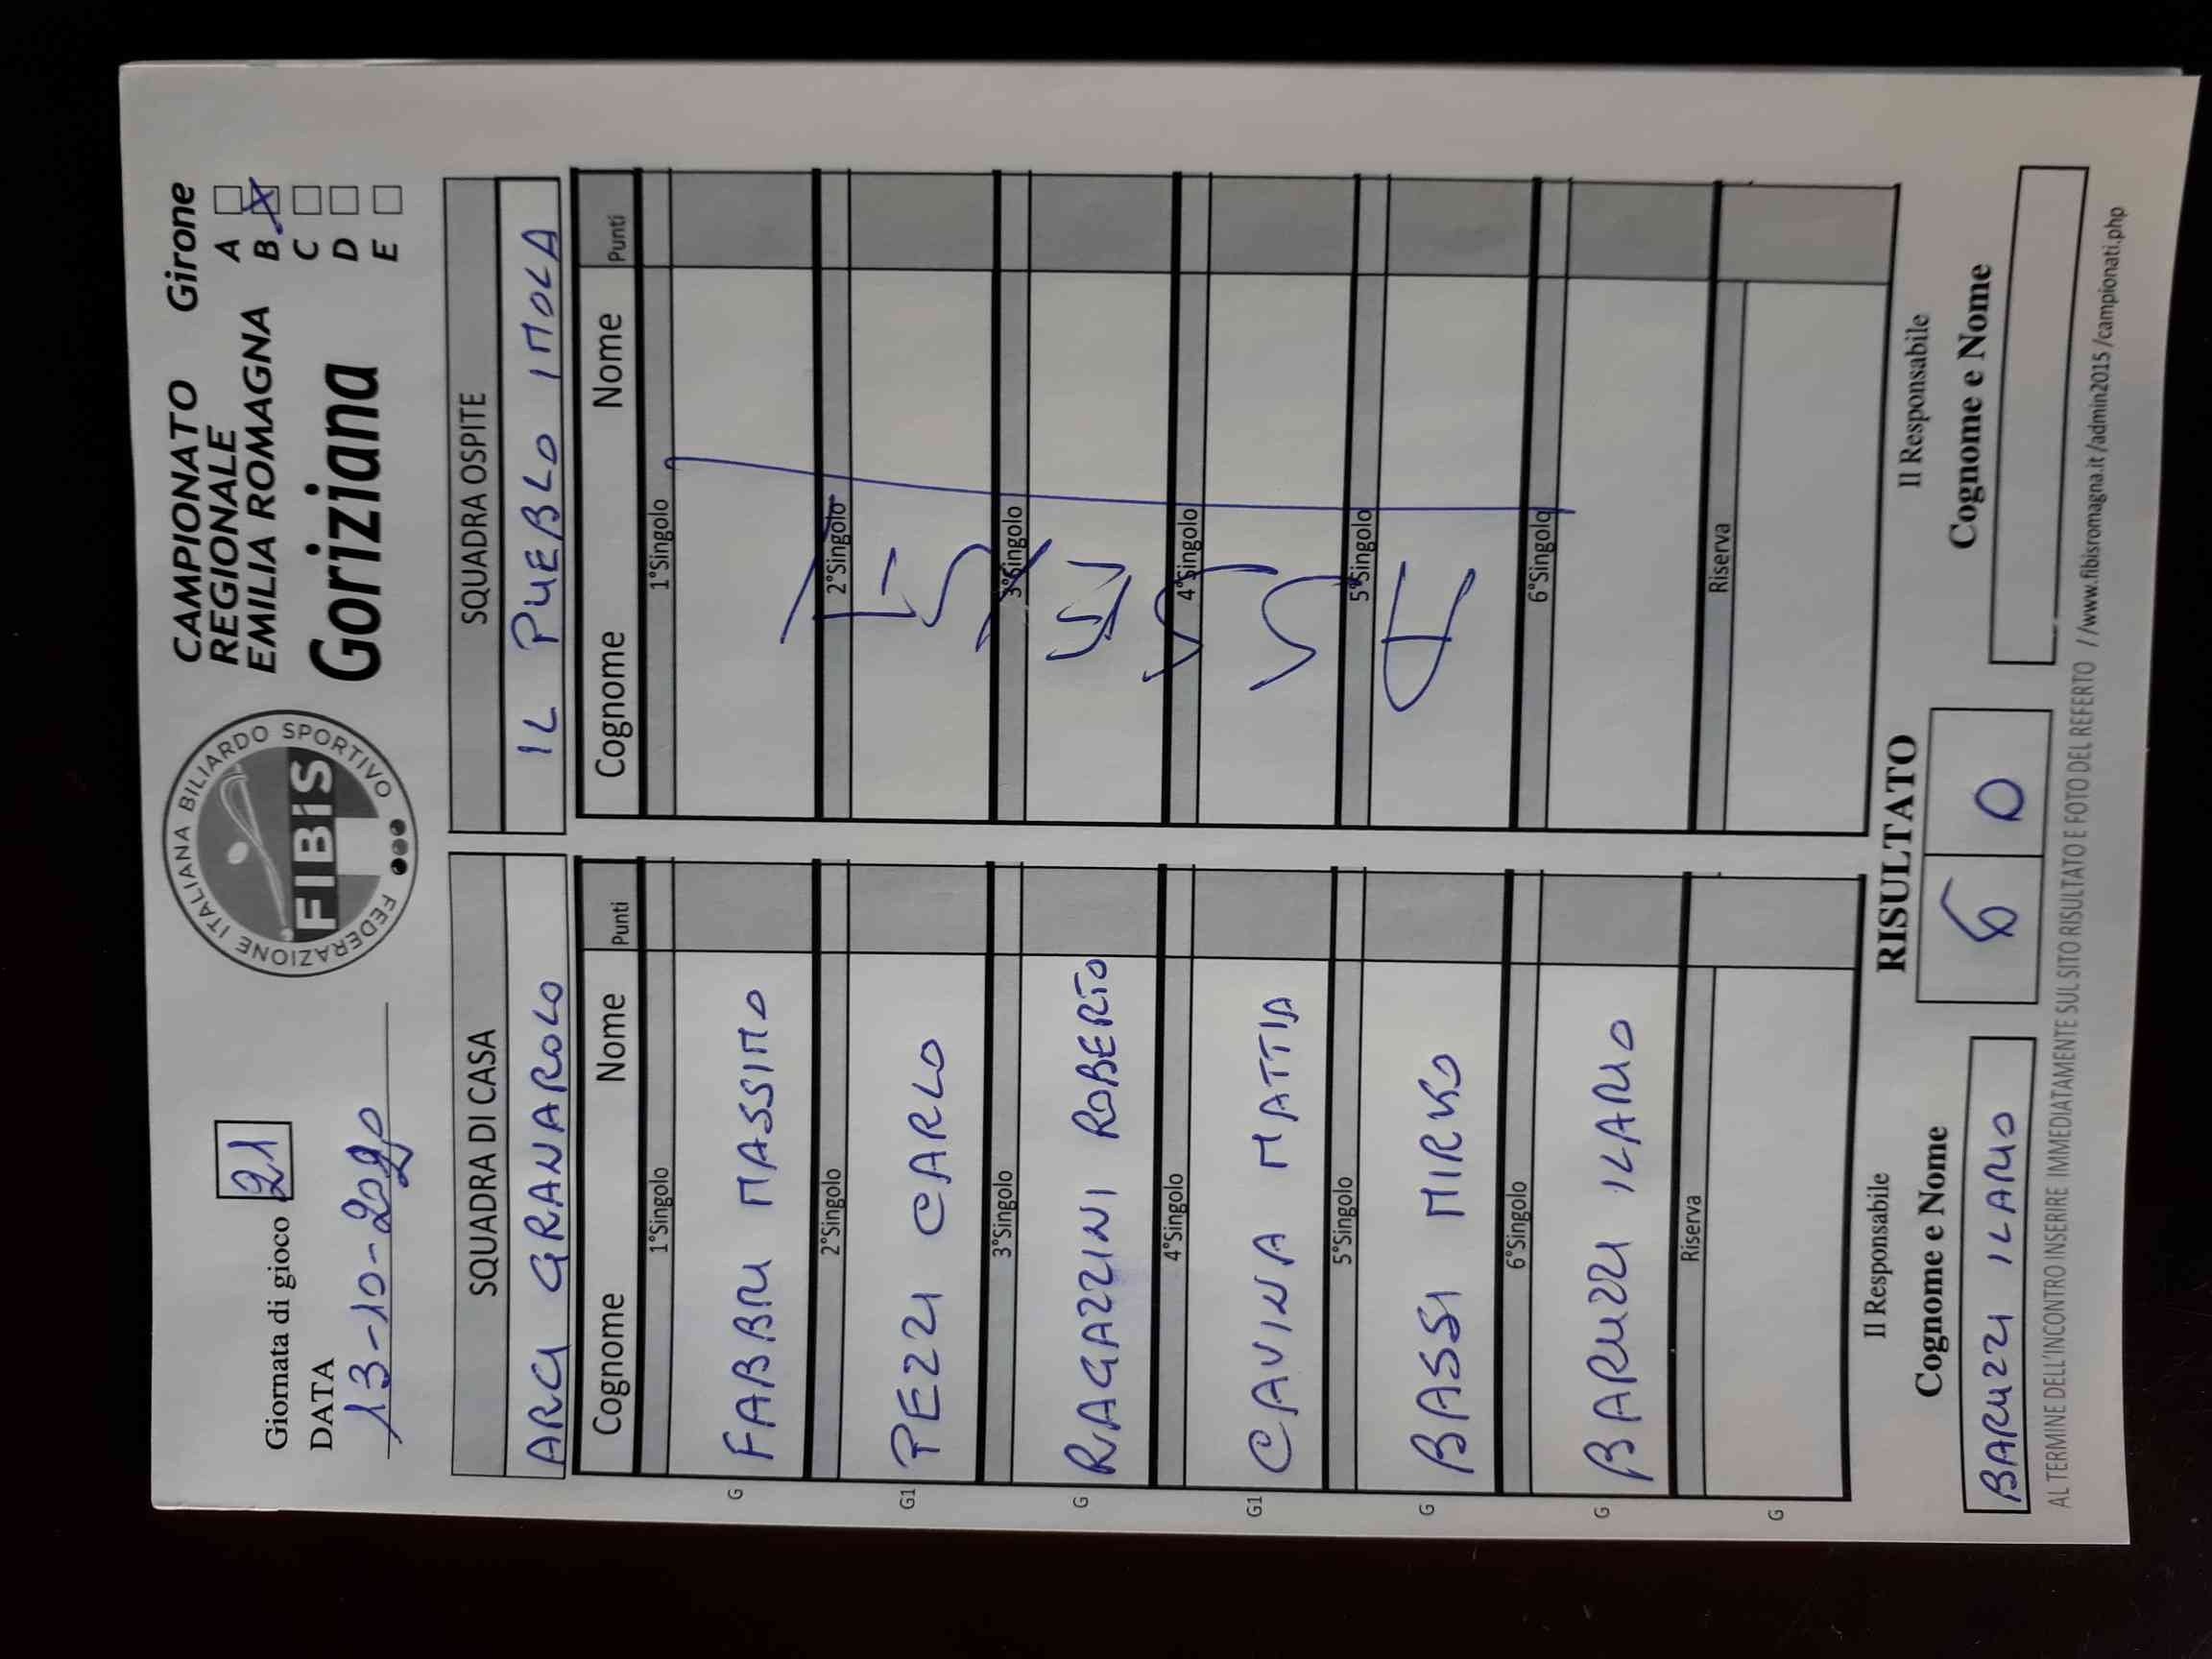 Giornata di gioco 21
DATA
13-10-2020
FEDERAZIONE ITALIANA BILIARDO SPORTIVO
FIBiS
CAMPIONATO
REGIONALE
EMILIA ROMAGNA
Goriziana
Girone
A
B
C
D
E
SQUADRA DI CASA
ARCI GRANAROLO
Cognome Nome Punti
1°Singolo
G FABBRI MASSIMO
2°Singolo
G1 PEZZI CARLO
3°Singolo
G RAGAZZINI ROBERTO
4°Singolo
G1 CAVINA MATTIA
5°Singolo
G BASSI MIRKO
6°Singolo
G BARUZZI ILARIO
Riserva
G
SQUADRA OSPITE
IL PUEBLO IMOLA
Cognome Nome Punti
1°Singolo
2°Singolo
3°Singolo
4°Singolo
5°Singolo
6°Singolo
Riserva
Il Responsabile
Cognome e Nome
BARUZZI ILARIO
RISULTATO
6 0
Il Responsabile
Cognome e Nome
AL TERMINE DELL'INCONTRO INSERIRE IMMEDIATAMENTE SUL SITO RISULTATO E FOTO DEL REFERTO //www.fibisromagna.it/admin2015/campionati.php